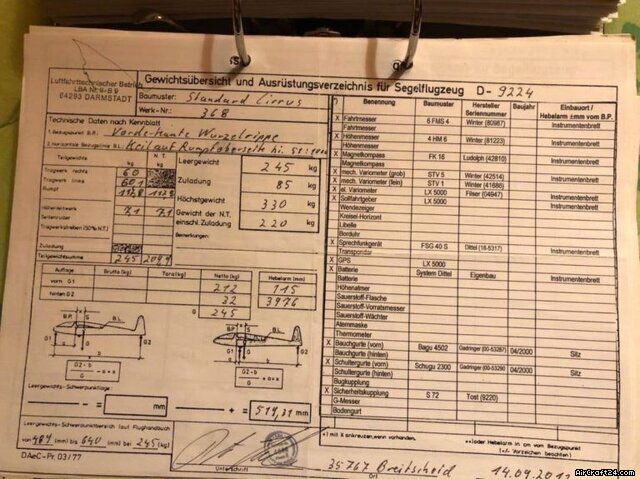 Luftfahrttechnischer Betrieb
LBA Nr. II-B 9
64293 DARMSTADT
Gewichtsübersicht und Ausrüstungsverzeichnis für Segelflugzeug D- 9224
Baumuster: Standard Cirrus
Werk-Nr.: 368
Technische Daten nach Kennblatt
1. Bezugspunkt B.P.: Vorderkante Wurzelrippe
2. horizontale Bezugslinie B.L.: Keil auf Rumpfoberseite
Teilgewichte N.T.
Tragwerk rechts 60
Tragwerk links 60,1
Rumpf
Höhenleitwerk 7,1 7,1
Seitenruder
Tragwerkstreben (50% N.T.)
Zuladung
Teilgewichtssumme 245
Leergewicht 245 kg
Zuladung 85 kg
Höchstgewicht 330 kg
Gewicht der N.T. einschl. Zuladung 220 kg
Bemerkungen:
Auflage Brutto (kg) Tara (kg) Netto (kg) Hebelarm (mm)
vorn G1 212 115
hinten G2 32 3976
G 245
B.P. B.L.
G1 G2
Leergewichts-Schwerpunktlage:
— = mm
— + = 519,31 mm
Leergewichts-Schwerpunktbereich laut Flughandbuch
von (mm) bis 640 (mm) bei 245 (kg)
DAeC-Pr. 03/77
Unterschrift
35767 Breitscheid
Ort
Benennung Baumuster Hersteller Seriennummer Baujahr Einbauort / Hebelarm ±mm vom B.P.
X Fahrtmesser 6 FMS 4 Winter (80987) Instrumentenbrett
Fahrtmesser
X Höhenmesser 4 HM 6 Winter (81223) Instrumentenbrett
Höhenmesser
X Magnetkompass FK 16 Ludolph (42810) Instrumentenbrett
X mech. Variometer (grob) STV 5 Winter (42514) Instrumentenbrett
X mech. Variometer (fein) STV 1 Winter (41686) Instrumentenbrett
X el. Variometer LX 5000 Filser (04947) Instrumentenbrett
X Sollfahrtgeber LX 5000 Instrumentenbrett
Wendezeiger
Kreisel-Horizont
Libelle
Borduhr
X Sprechfunkgerät FSG 40 S Dittel (16-5317) Instrumentenbrett
Transpondar
X GPS LX 5000
X Batterie System Dittel Eigenbau Instrumentenbrett
Batterie
Höhenatmer
Sauerstoff-Flasche
Sauerstoff-Vorratsmesser
Sauerstoff-Wächter
Atemmaske
Thermometer
X Bauchgurte (vorn) Bagu 4502 Gadringer (00-53287) 04/2000 Sitz
Bauchgurte (hinten)
X Schultergurte (vorn) Schugu 2300 Gadringer (00-53290 04/2000 Sitz
Schultergurte (hinten)
Bugkupplung
X Sicherheitskupplung S 72 Tost (9220)
G-Messer
Bodengurt
*) mit X ankreuzen, wenn vorhanden. **) oder Hebelarm in cm vom Bezugspunkt
(+/- Vorzeichen beachten)
AirCraft24.com